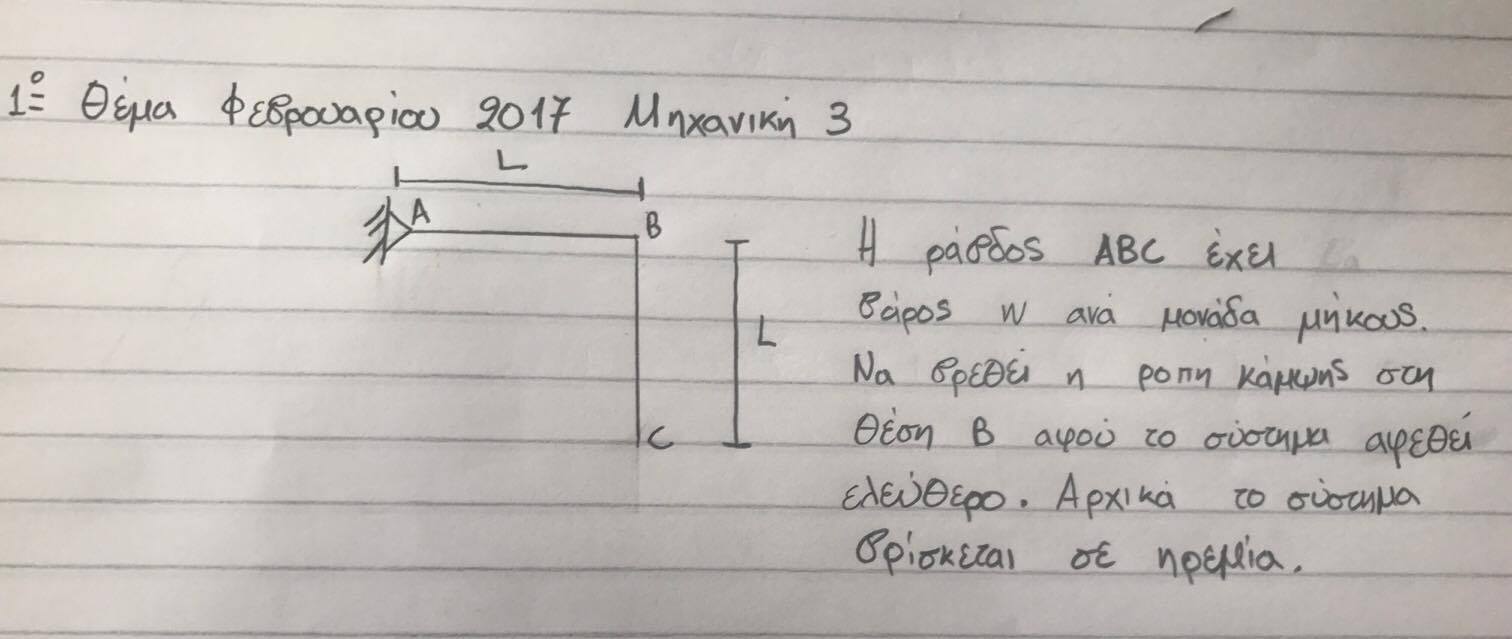 1º Θέμα Φεβρουαρίου 2017 Μηχανική 3
L
A
B
L
C
Η ράβδος ABC έχει
βάρος w ανά μονάδα μήκους.
Να βρεθεί η ροπη κάμψης στη
θέση Β αφού το σύστημα αφεθεί
ελεύθερο. Αρχικά το σύστημα
βρίσκεται σε ηρεμία.